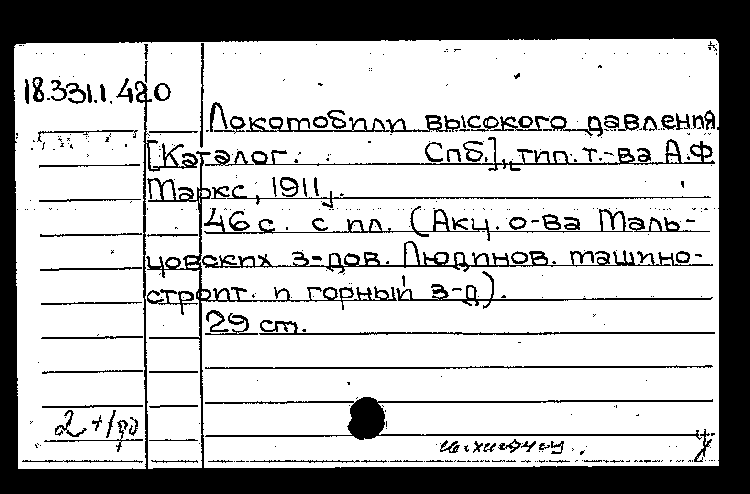 18.331.1.480
Локомобили высокого давления.
[Каталог. Спб.], тип. т.-ва А.Ф.
Маркс, 1911.
46 с. с ил. (Акц. о-ва Маль-
цовских з-дов. Людинов. машино-
строит. и горный з-д).
29 см.